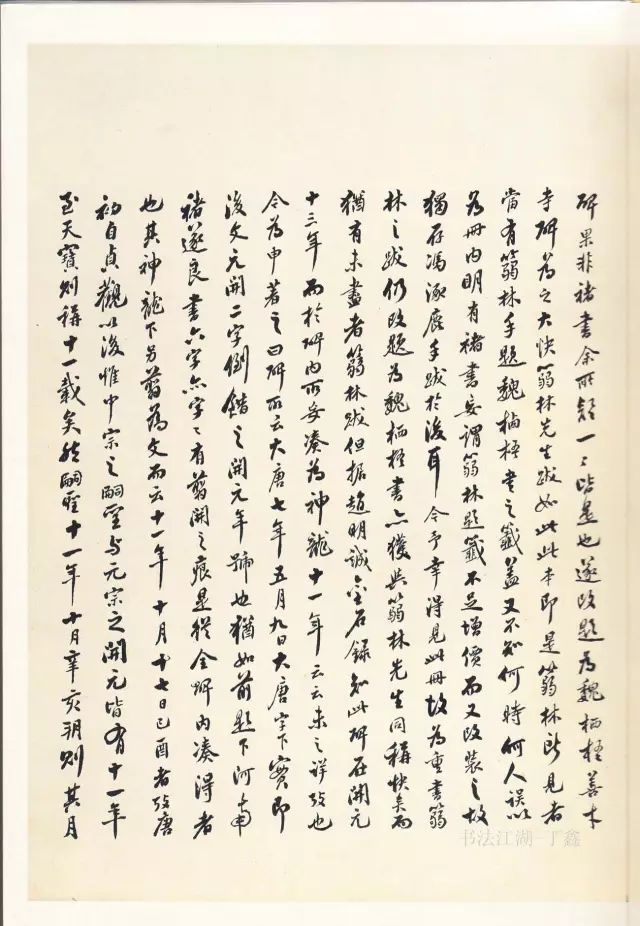 碑果非褚書余所疑一〻皆是也遂改題為魏栖梧善才
寺碑為之大快蒻林先生跋如此此本即是蒻林所見者
當有蒻林手題魏栖梧書之籤蓋又不知何時何人誤以
為冊內明有褚書妄謂蒻林題籤不足增價而又改裝之故
獨存馮涿鹿手跋於後耳今予幸得見此冊故為重書蒻
林之跋仍改題為魏栖梧書亦獲與蒻林先生同稱快矣而
猶有未盡者蒻林跋但据趙明誠金石錄知此碑在開元
十三年而於碑內所妄湊為神龍十一年云云未之詳攷也
今為申著之曰碑所云大唐七年五月九日大唐字下實即
後文元開二字倒錯之開元年號也猶如前題下河南
褚遂良書六字亦字〻有剪開之痕是從全碑內湊得者
也其神龍下另剪為文而云十一年十月十七日己酉者攷唐
初自貞觀以後惟中宗之嗣聖与元宗之開元皆有十一年
至天寶則稱十一載矣然嗣聖十一年十月辛亥朔則其月
书法江湖-丁鑫